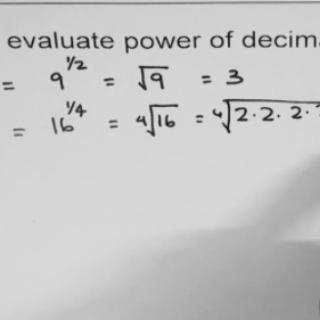 evaluate power of decima
= 9^{1/2} = √9 = 3
= 16^{1/4} = ∜16 = ∜2·2·2·